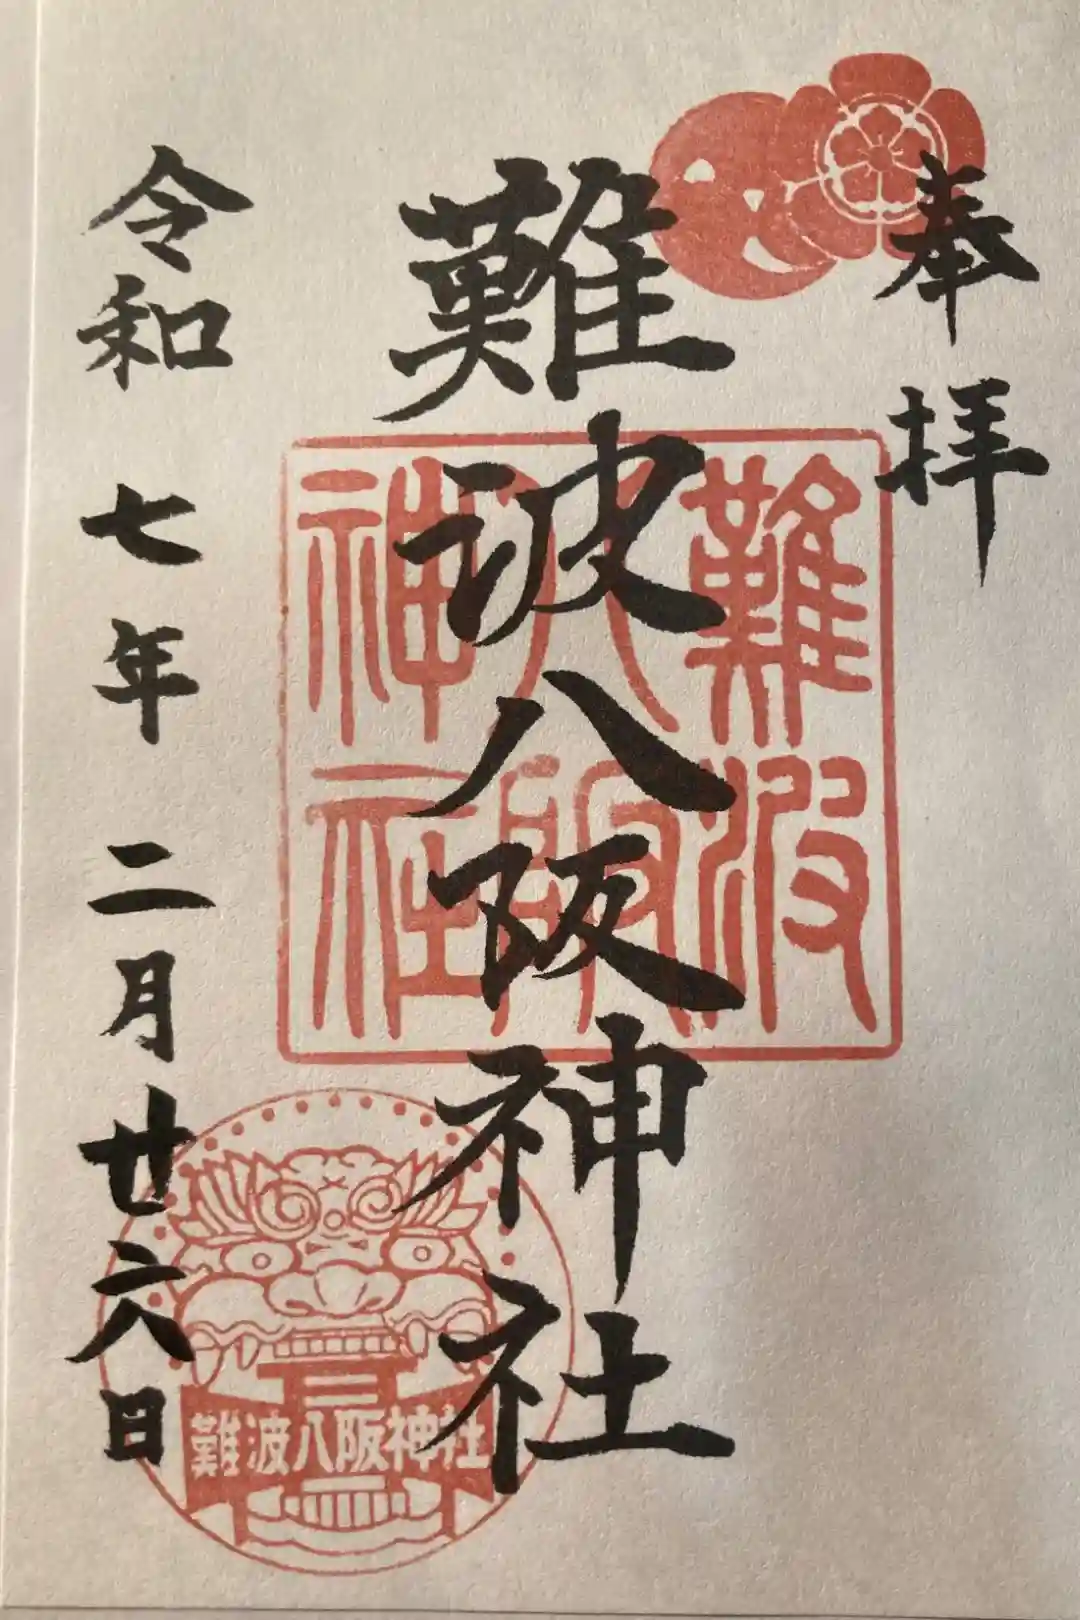 奉拝
難波八阪神社
難波
八阪
神社
令和七年二月廿六日
難波八阪神社